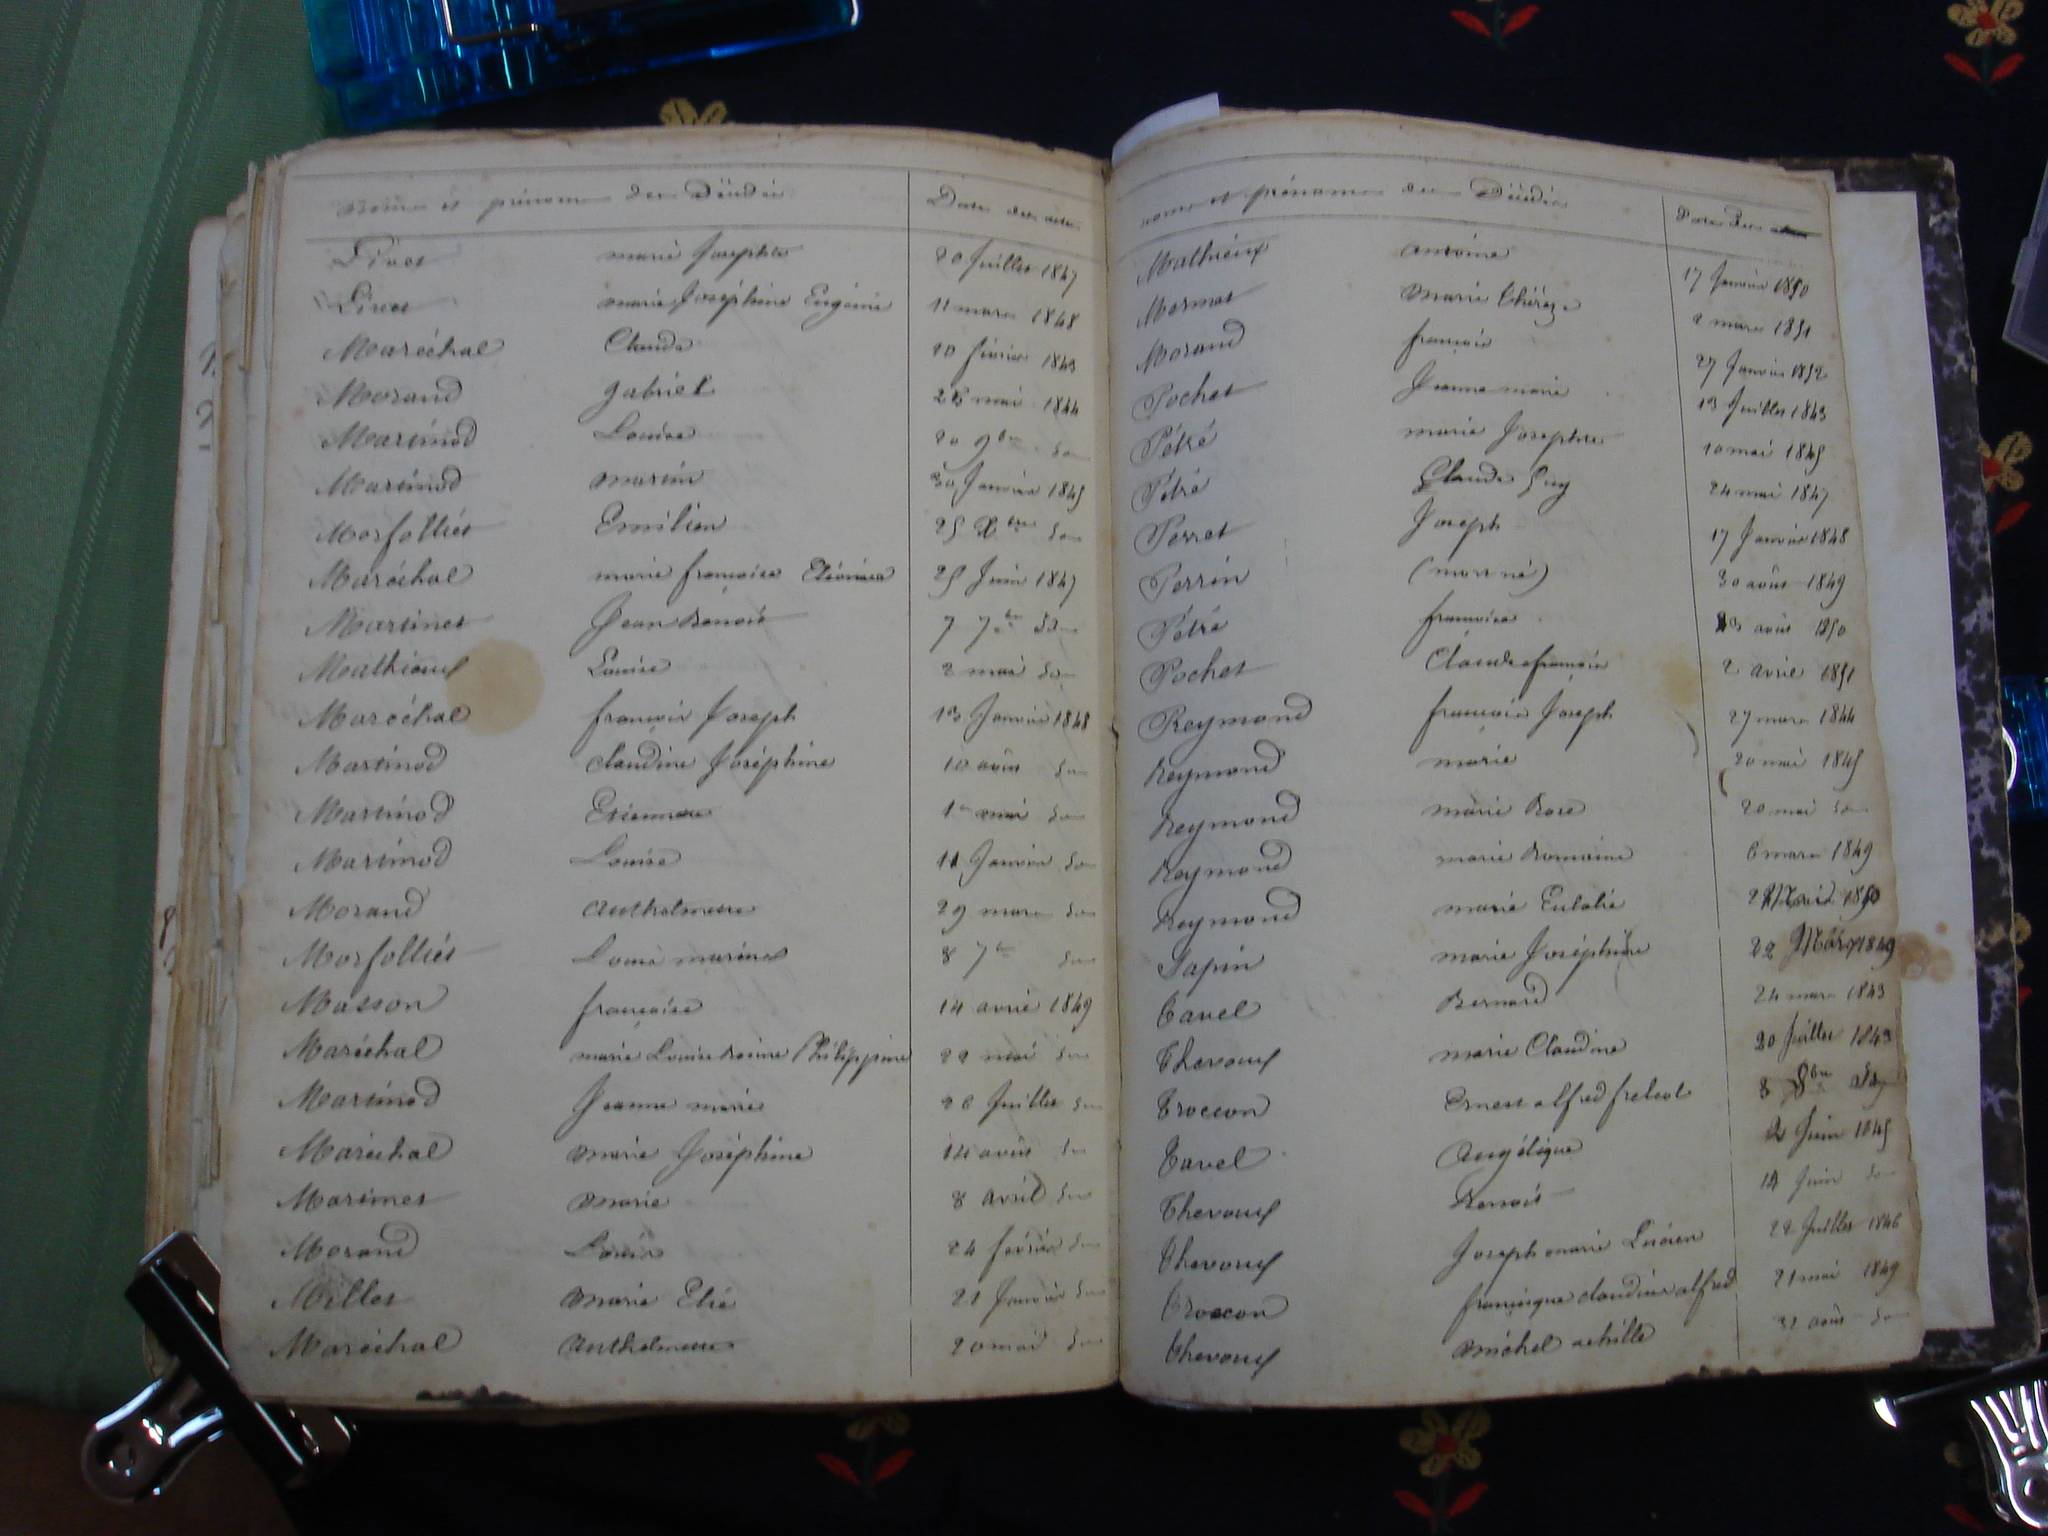 noms et prénoms des Décédés Date des actes
Livet marie Josephte 20 Juillet 1847
Livet marie Joséphine Eugénie 11 mars 1848
Maréchal Claude 10 février 1843
Morand gabriel 26 mai 1844
Martinod Louise 20 9bre do
Martinod marin 30 Janvier 1845
Morfolliét Emilien 25 Xbre do
Maréchal marie francoise 25 Juin 1847
Martinet Jean Benoit 7 7bre do
Mathieux Louise 2 mai do
Maréchal francois Joseph 13 Janvier 1848
Martinod claudine Joséphine 10 août do
Martinod Etiennette 1er mai do
Martinod Louise 11 Janvier do
Morand Anthelmette 29 mars do
Morfolliét Louis 8 7bre do
Masson francoise 14 avril 1849
Maréchal marie Louise Philippine 22 mai do
Martinod Jeanne marie 26 Juillet do
Maréchal marie Joséphine 14 août do
Martinet marie 8 avril do
Morand Louis 24 février do
Millet marie 21 Janvier do
Maréchal Anthelmette 20 mai do
noms et prénoms des Décédés Date des actes
Mathieux antoine 17 Janvier 1850
Mermet marie thérèze 2 mars 1851
Morand francois 27 Janvier 1852
Pochet Jeanne marie 13 Juillet 1843
Pétré marie Josephte 10 mai 1845
Pétré Claude Guy 24 mai 1847
Perret Joseph 17 Janvier 1848
Perrin (mort né) 30 août 1849
Pétré francoise août 1850
Pochet Claude francois 2 avril 1851
Reymond francois Joseph 27 mars 1844
Reymond marie 20 mai 1845
Reymond marie Rose 20 mai do
Reymond marie Romaine 6 mars 1849
Reymond marie Eulalie 1850
Sapin marie Joséphine 22 Mars 1849
Tavel Bernard 24 mars 1843
Thevoux marie Claudine 20 Juillet 1843
Troccon Ernest alfred 8bre do
Tavel Angélique 2 Juin 1845
Thevoux Benoit 14 Juin do
Thevoux Joseph marie Lucien 22 Juillet 1846
Troccon claudius alfred 21 mai 1849
Thevoux michel achille 31 août do